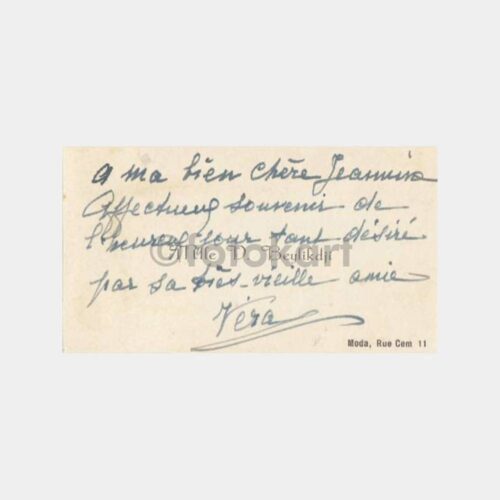 A ma bien chère Jeannine
Affectueux souvenir de
l'heureux jour tant désiré
©fotokart
Mlle D. Beylikdji
par sa très-vieille amie
Véra
Moda, Rue Cem 11